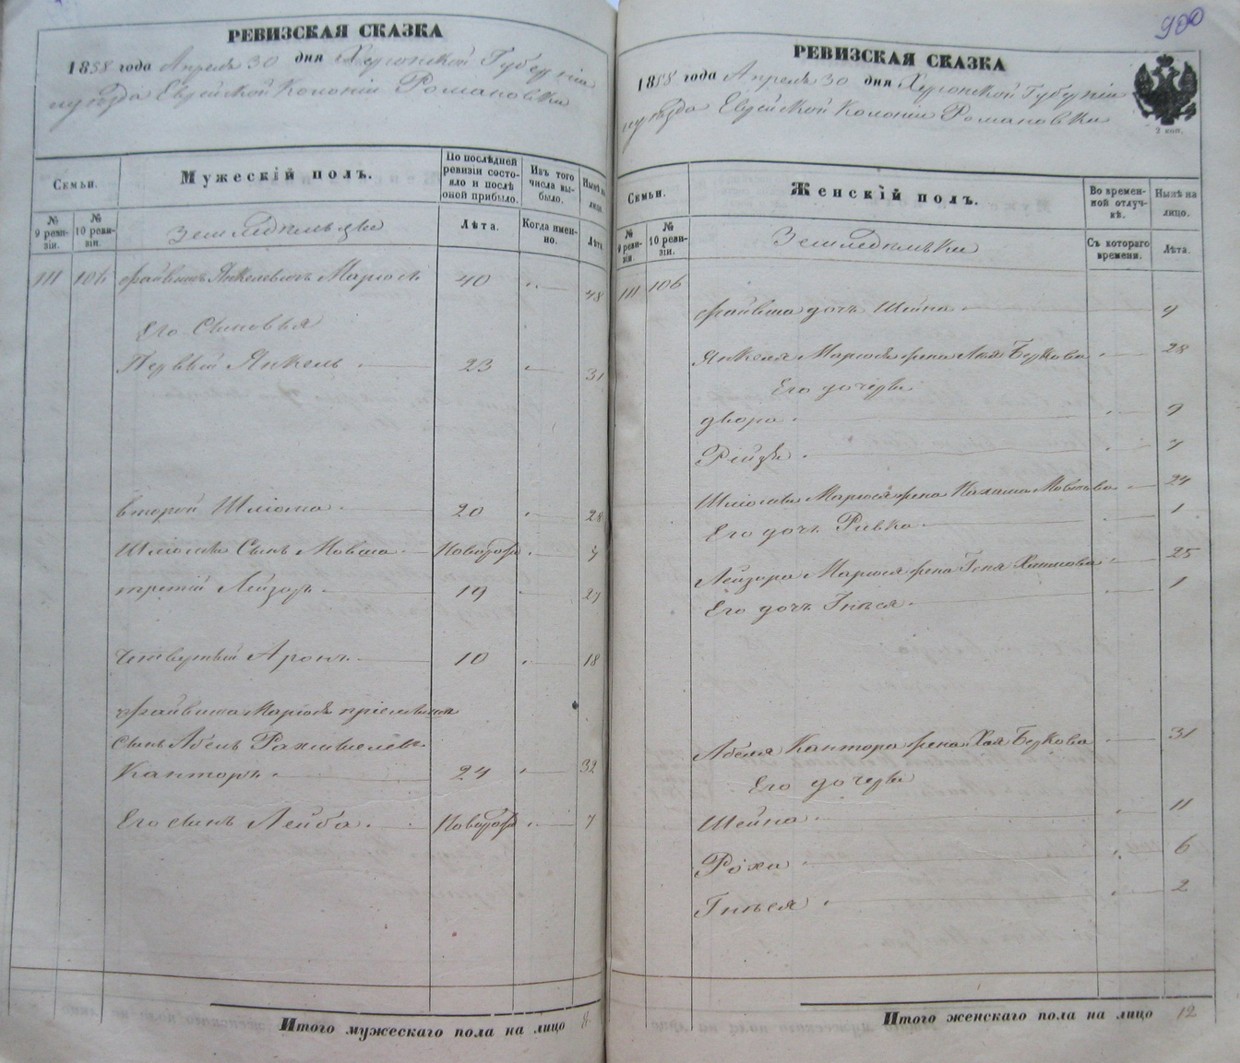 РЕВИЗСКАЯ СКАЗКА
1858 года Апреля 30 дня Херсонской Губерніи
и уезда Еврейской Колоніи Романовки
Семьи.
Мужескій полъ.
По последней ревизіи состояло и после оной прибыло.
Изъ того числа выбыло.
Ныне на лицо.
№ 9 ревизіи.
№ 10 ревизіи.
Земледельцы
Лѣта.
Когда именно.
Лѣта
111 106 Файвишъ Янкелевичъ 40 48
Его Сыновья
Первый Янкель 23 31
второй Шліома 20 28
Шліомы Сынъ Мовша Новорож 7
третій Лейзоръ 19 27
четвертый Аронъ 10 18
Файвиша пріемный
сынъ Абель
Канторъ 24 32
Его сынъ Лейба Новорож 7
Итого мужескаго пола на лицо 8
900
РЕВИЗСКАЯ СКАЗКА
1858 года Апреля 30 дня Херсонской Губерніи
и уезда Еврейской Колоніи Романовки
2 коп.
Семьи.
Женскій полъ.
Во временной отлучкѣ.
Ныне на лицо.
№ 9 ревизіи.
№ 10 ревизіи.
Земледелки
Съ котораго времени.
Лѣта.
111 106
Файвиша дочь Шейна 9
Янкеля жена Беркова 28
Его дочери
двора 9
Рейзя 7
Шліомы жена Мовшова 24
Его дочь Ривка 1
Лейзора жена Геня 25
Его дочь Гнеся 1
Абеля Кантора жена Хая Беркова 31
Его дочери
Шейна 11
Роха 6
Гнеся 2
Итого женскаго пола на лицо 12